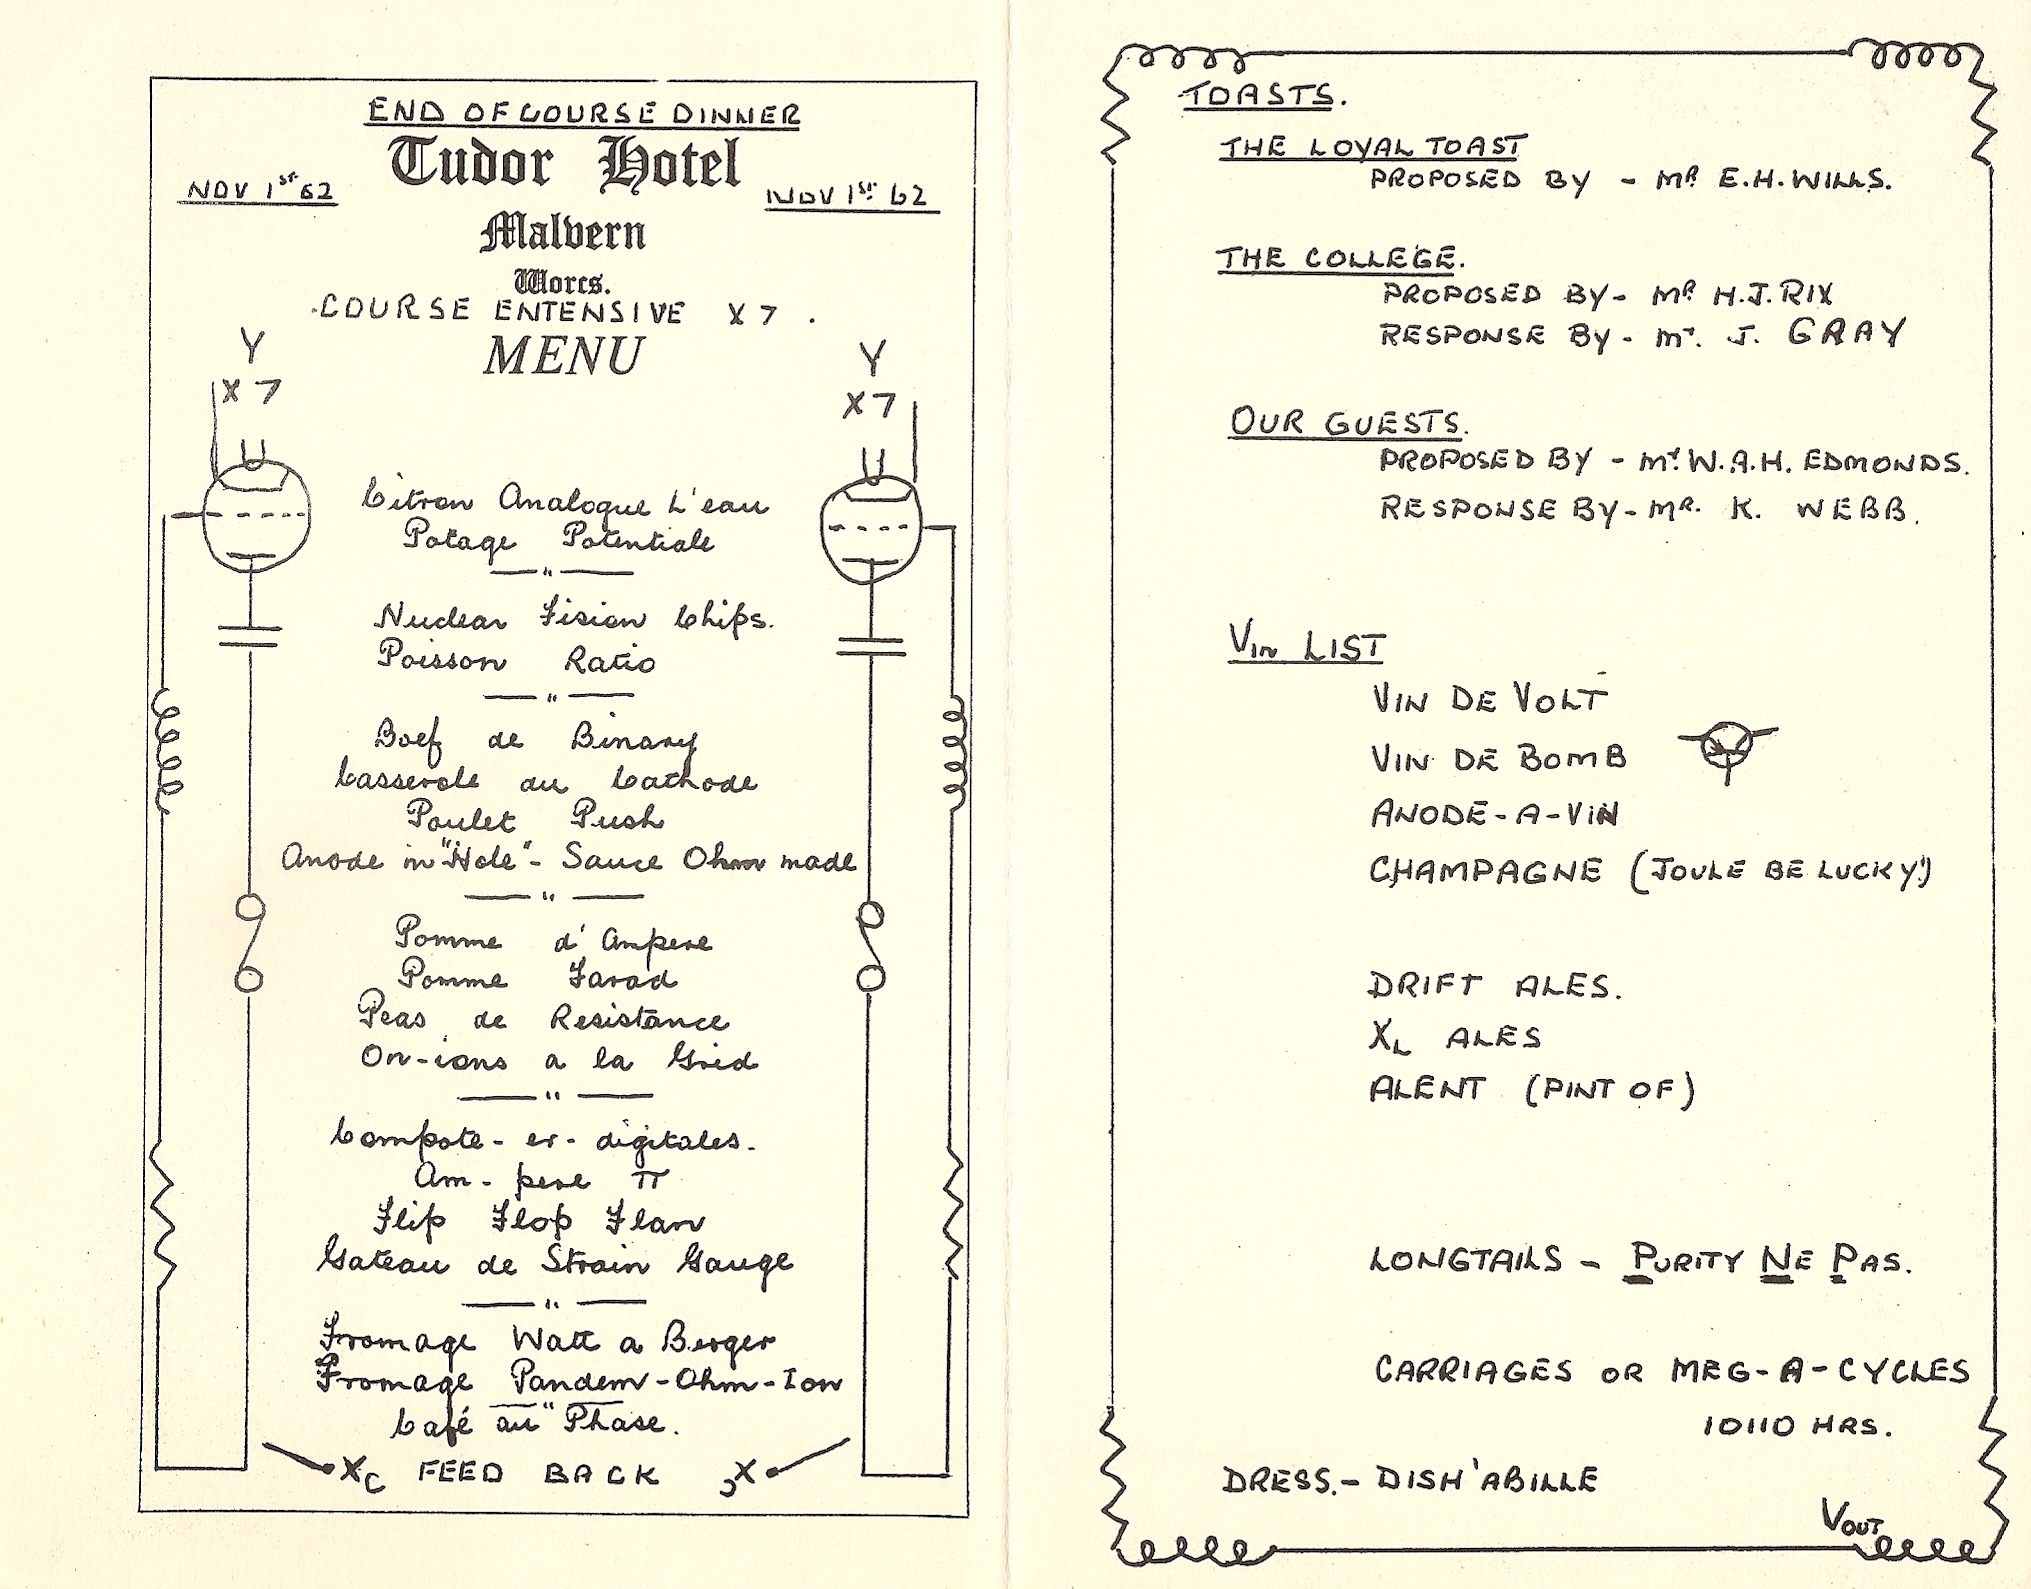 END OF COURSE DINNER
Tudor Hotel
NOV 1ST 62
NOV 1ST 62
Malvern
Worcs.
COURSE ENTENSIVE X 7 .
MENU
Y
X 7
Y
X 7
Citron Analogue L'eau
Potage Potentiale
Nuclear Fision Chips.
Poisson Ratio
Boef de Binary
Casserole au Cathode
Poulet Push
Anode in "Hole" - Sauce Ohm made
Pomme d'Ampere
Pomme Farad
Peas de Resistance
On-ions a la Grid
Compote-er-digitales.
Am-pere π
Flip Flop Flan
Gateau de Strain Gauge
Fromage Watt a Berger
Fromage Pandem-Ohm-Ion
Café au Phase.
XC FEED BACK XC
TOASTS.
THE LOYAL TOAST
PROPOSED BY - MR E.H. WILLS.
THE COLLEGE.
PROPOSED BY - MR H.J. RIX
RESPONSE BY - Mr. J. GRAY
OUR GUESTS.
PROPOSED BY - Mr. W.A.H. EDMONDS.
RESPONSE BY - MR. K. WEBB.
Vin LIST
VIN DE VOLT
VIN DE BOMB
ANODE-A-VIN
CHAMPAGNE (JOULE BE LUCKY!)
DRIFT ALES.
XL ALES
ALENT (PINT OF)
LONGTAILS - PURITY NE PAS.
CARRIAGES OR MEG-A-CYCLES
10110 HRS.
DRESS.- DISH'ABILLE
VOUT